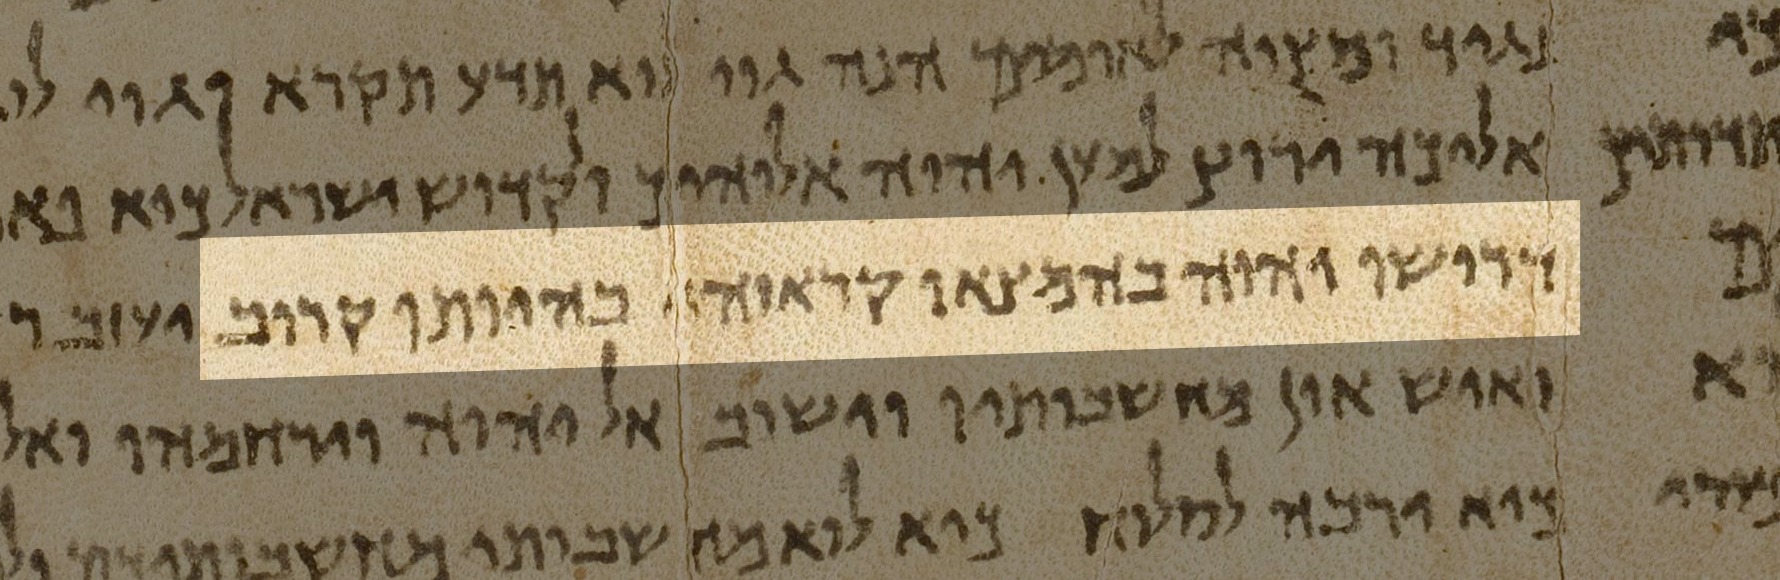 נגיד ומצוה לאומים הנה גוי לוא תדע תקרא וגוי
אליכה ירוץ למען יהוה אלוהיך וקדוש ישראל כיא
דרושו יהוה בהמצאו קראוהו בהיותו קרוב יעזוב
ואיש און מחשבותיו וישוב אל יהוה וירחמהו ואל
כיא ירבה לסלוח כיא לוא מחשבותי מחשבותיכם